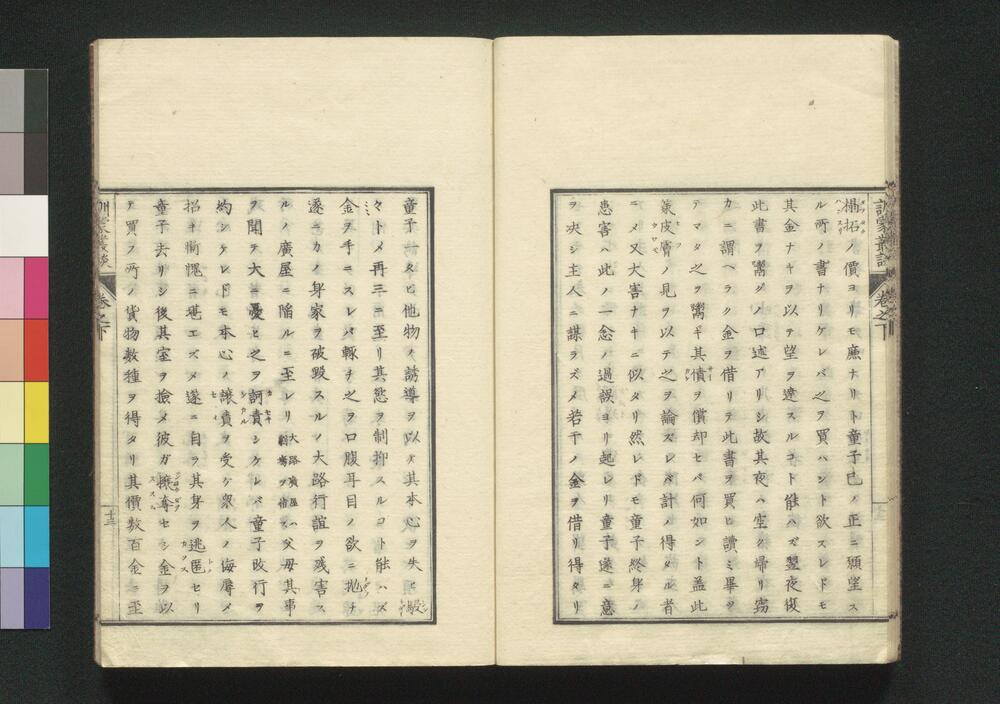 訓蒙叢談 卷之下
榻拓ノ價ヨリモ廉ナリト童子己ノ正ニ願望ス
ル所ノ書ナリケレバ之ヲ買ハント欲スレドモ
其金ナキヲ以テ望ヲ達スルコト能ハズ翌夜復
此書ヲ鬻グノ口述アリシ故其夜ハ空ク歸リ竊
カニ謂ヘラク金ヲ借リテ此書ヲ買ヒ讀ミ畢ヲ
テマタ之ヲ鬻ギ其債ヲ償却セバ何如ント蓋此
等皮膚ノ見ヲ以テ之ヲ論ズレバ計ノ得タル者
ニメ又大害ナキニ似タリ然レドモ童子終身ノ
患害ハ此ノ一念ノ過誤ヨリ起レリ童子遂ニ意
ヲ决シ主人ニ謀ラズメ若干ノ金ヲ借リ得タリ
童子一タビ他物ノ誘導ヲ以テ其本心ヲ失ヒ
々トメ再三ニ至リ其慾ヲ制抑スルコト能ハズ
金ヲ手ニスレバ輙チ之ヲ口腹耳目ノ欲ニ抛チ
遂ニカノ身家ヲ破毀スルノ大路行誼ヲ残害ス
ルノ廣屋ニ陥ルニ至レリ 大路廣屋ハ ヲ借ス 父母其事
ヲ聞テ大ニ憂ヒ之ヲ訶責シケレバ童子改行ヲ
約シケレドモ本心ノ譲責ヲ受ケ衆人ノ侮辱メ
招キ慚愧ニ堪エズメ遂ニ自ラ其身ヲ逃匿セリ
童子去リシ後其室ヲ撿メ彼ガ攘奪セシ金ヲ以
テ買フ所ノ貨物数種ヲ得タリ其價数百金ニ至
訓蒙叢談 卷之下
十三